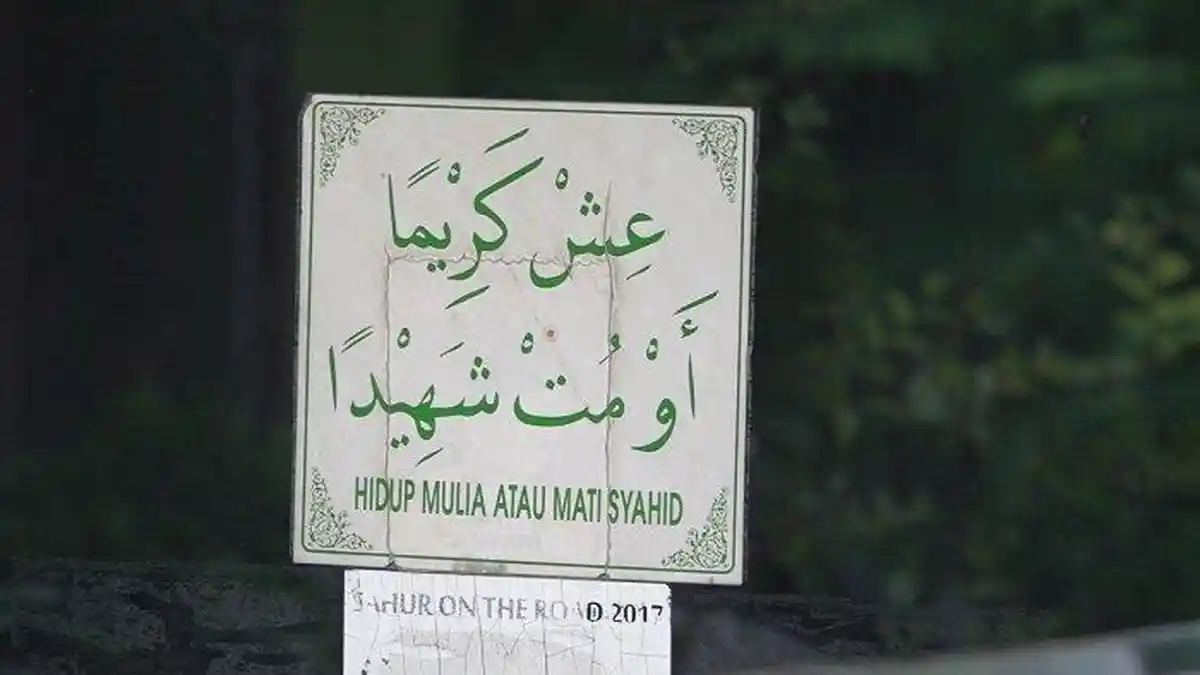 عِشْ كَرِيْمًا
أَوْ مُتْ شَهِيْدًا
HIDUP MULIA ATAU MATI SYAHID
SAHUR ON THE ROAD 2017